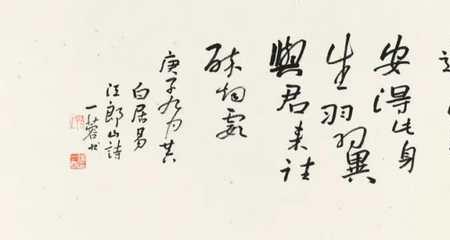 安得此身
生羽翼
與君来往
醉烟霞
庚子九月
白居易
江郎山詩
一蓉书